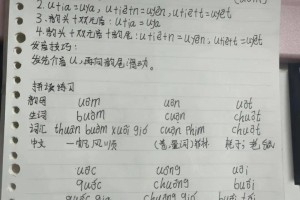 2. u+ia = uya, u+iê+n = uyên, u+iê+t = uyêt
3. 韵头 + 双元音: u+ia = uya
4. 韵头 + 双元音 + 韵尾: u+iê+n = uyên, u+iê+t = uyêt
发音技巧:
发完介音 u, 再向韵尾滑动。
拼读练习
韵母 uôm uôn uôt
生词 buồm cuộn chuột
词汇 thuận buồm xuôi gió cuộn phim chuột
中文 一帆风顺
uôc uông uôi
quốc chuông buổi